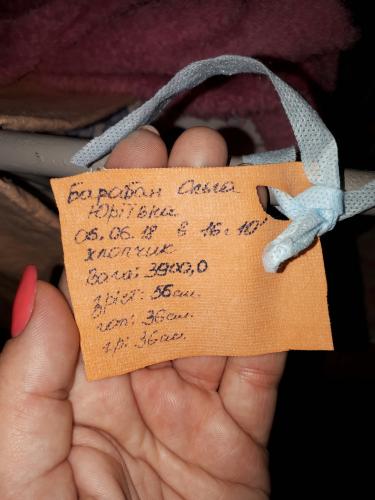 Барабан Ольга
Юріївна
05.06.18 в 16:10"
хлопчик
Вага: 3900,0
зріст: 56см.
гол: 36см.
гр: 36см.